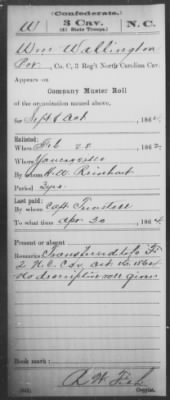 (Confederate.)
W 3 Cav. N.C.
(41 State Troops.)
Wm Wallington
Pvt, Co. C, 3 Reg't North Carolina Cav.
Appears on
Company Muster Roll
of the organization named above,
for Sept & Oct, 186
Enlisted:
When Feb 28, 186
Where
By whom Reinhart
Period 2 yrs
Last paid:
By whom Capt
To what time Apr 30, 186
Present or absent
Remarks: Transferred to Co
2 N.C. Cav. Oct
No descriptive roll given
Book mark:
R W Fish
(642) Copyist.